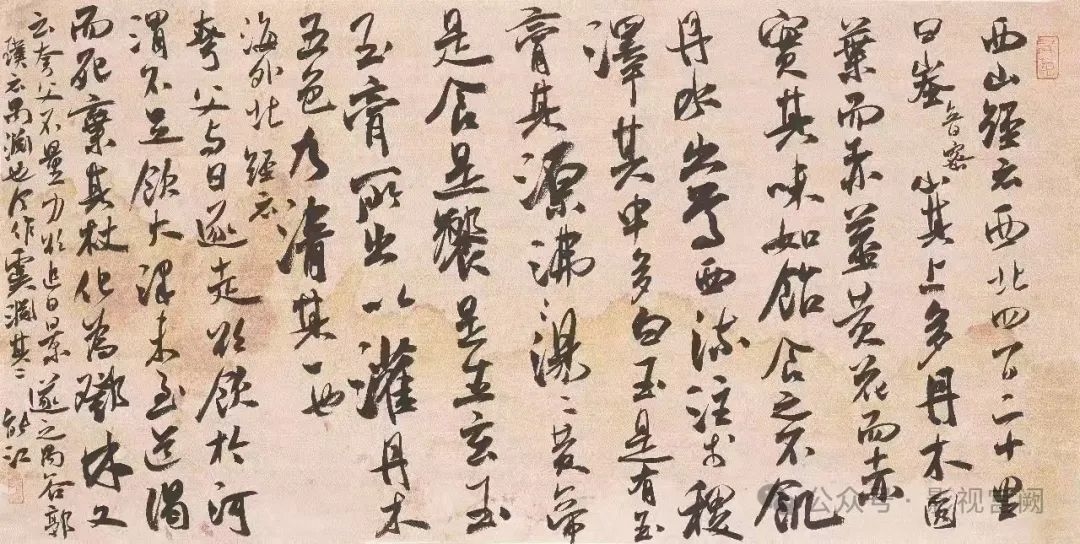 西山經云西北四百二十里
曰峚音密山其上多丹木圓
葉而赤莖黃花而赤
實其味如飴食之不飢
丹水出焉西流注于稷
澤其中多白玉是有玉
膏其源沸〻湯〻黃帝
是食是饗是生玄玉
玉膏所出以灌丹木
五色乃清其一也
海外北經云
夸父与日逐走欲飲於河
渭不足飲大澤未至道渴
而死棄其杖化為鄧林又
云夸父不量力欲追日景遂之禺谷郭
璞云禺淵也今作虞淵其二
公众号·影视宫阙